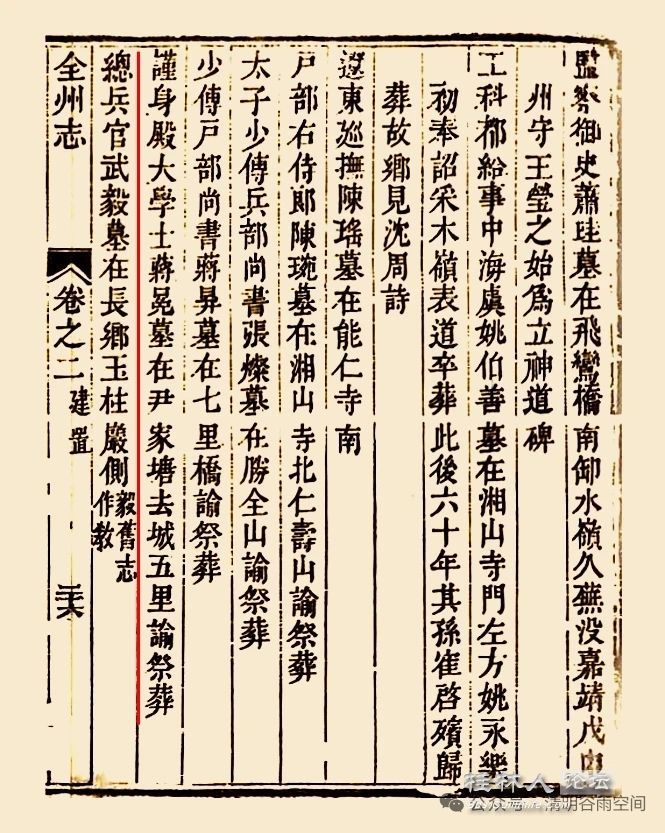 監察御史蕭珪墓在飛鸞橋南仰水嶺久蕪没嘉靖戊申
州守王瑩之始爲立神道碑
工科都給事中海虞姚伯善墓在湘山寺門左方姚永樂
初奉詔采木嶺表道卒葬此後六十年其孫崔啓殯歸
葬故鄉見沈周詩
遼東巡撫陳瑤墓在能仁寺南
戸部右侍郎陳琬墓在湘山寺北仁壽山諭祭葬
太子少傅兵部尚書張燦墓在勝全山諭祭葬
少傅戸部尚書蔣昇墓在七里橋諭祭葬
謹身殿大學士蔣冕墓在尹家塘去城五里諭祭葬
總兵官武毅墓在長鄉玉柱巖側毅舊志作教
全州志 卷之二 建置 三十六
桂林人论坛
清明谷雨空间